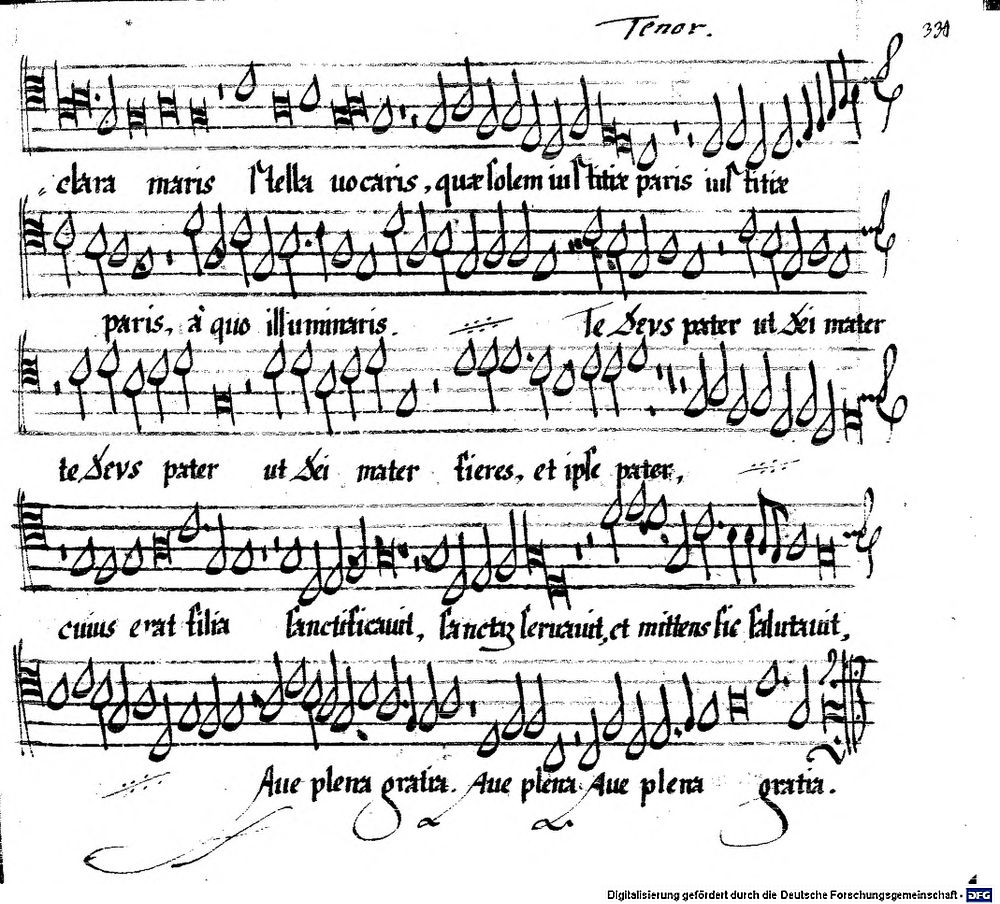 Tenor.
331
clara maris stella uocaris, quæ solem iustitiæ paris iustitiæ
paris, à quo illuminaris. Te Deus pater ut Dei mater
te Deus pater ut Dei mater fieres, et ipse pater,
cuius erat filia sanctificauit, sanctaȝ seruauit, et mittens sic salutauit,
Aue plena gratia. Aue plena Aue plena gratia.
Digitalisierung gefördert durch die Deutsche Forschungsgemeinschaft - DFG